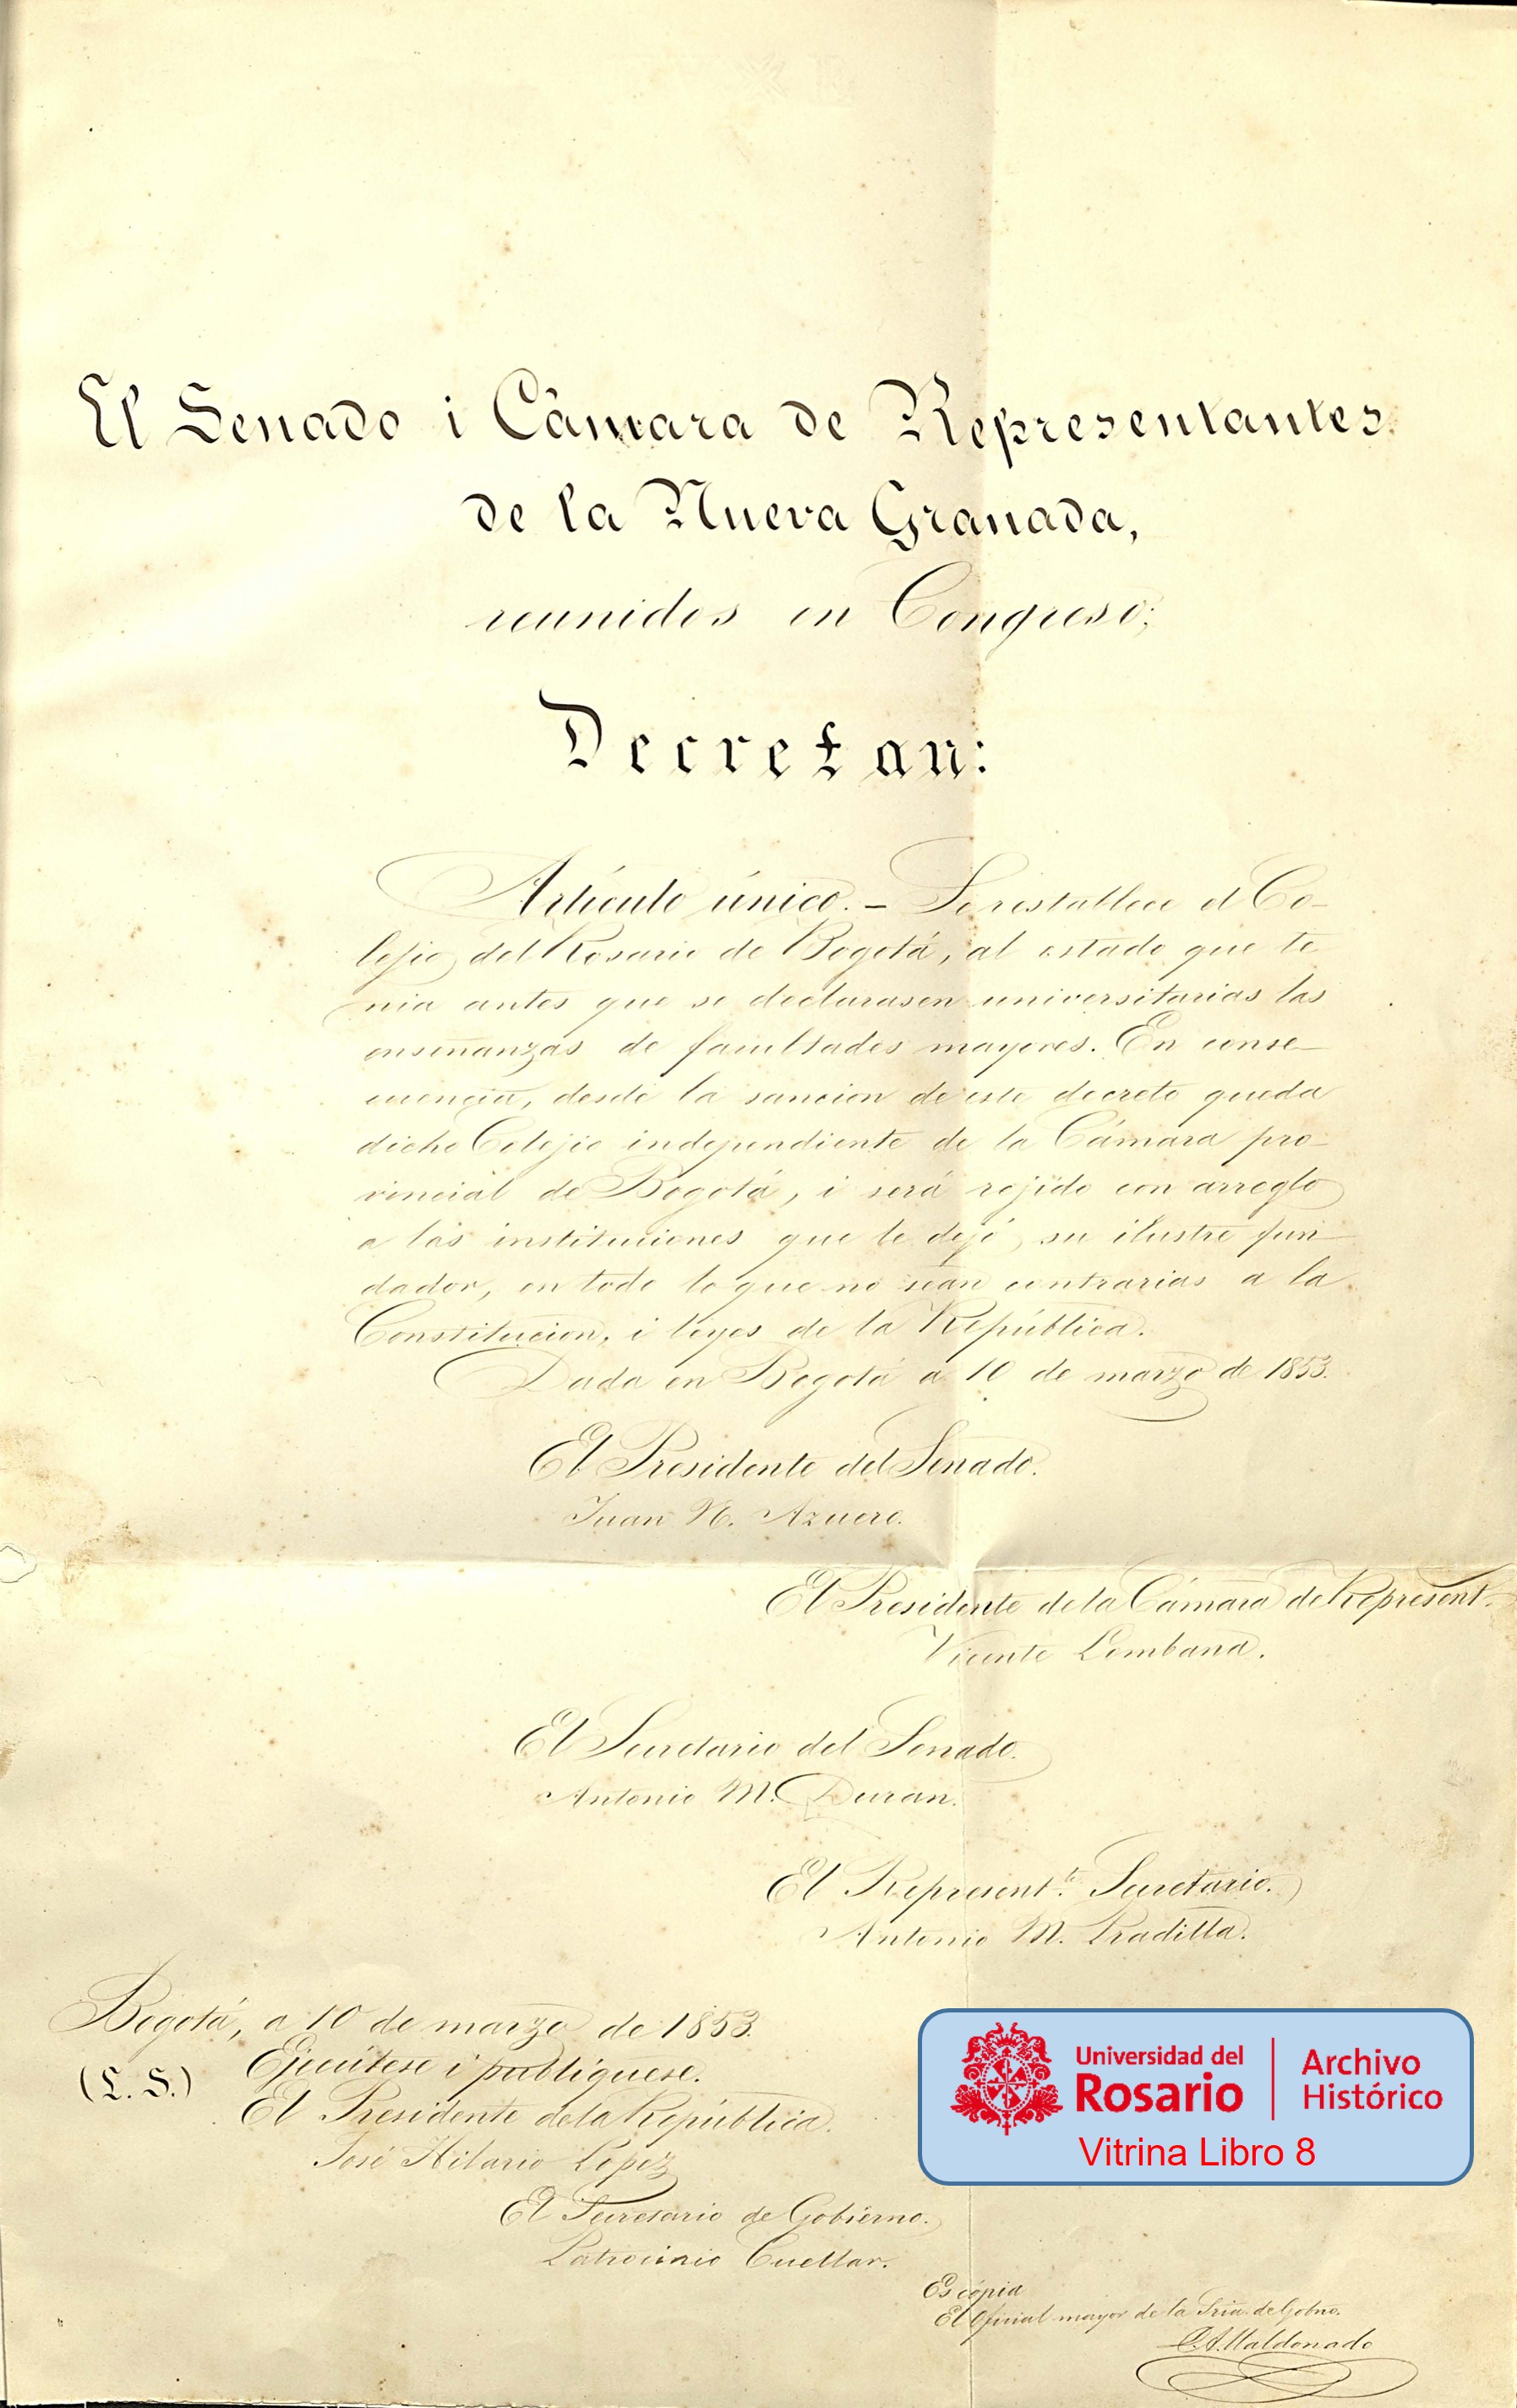 El Senado i Cámara de Representantes
de la Nueva Granada,
reunidos en Congreso;
Decretan:
Artículo único. — Se restablece el Co-
lejio del Rosario de Bogotá, al estado que te
nia antes que se declarasen universitarias las
enseñanzas de facultades mayores. En conse-
cuencia, desde la sancion de este decreto queda
dicho Colejio independiente de la Cámara pro-
vincial de Bogotá, i será rejido con arreglo
a las instituciones que le dejó su ilustre fun
dador, en todo lo que no sean contrarias a la
Constitucion, i leyes de la República.
Dada en Bogotá a 10 de marzo de 1853.
El Presidente del Senado.
Juan N. Azuero.
El Presidente de la Cámara de Represent.
Vicente Lombana.
El Secretario del Senado.
Antonio M. Duran.
El Represent.te Secretario.
Antonio M. Pradilla.
Bogotá, a 10 de marzo de 1853.
(L. S.) Ejecútese i publíquese.
El Presidente de la República.
José Hilario López
El Secretario de Gobierno.
Patrocinio Cuellar.
Es cópia
El Oficial mayor de la Sria. de Gobno.
C. A. Maldonado
Universidad del
Rosario
Archivo
Histórico
Vitrina Libro 8